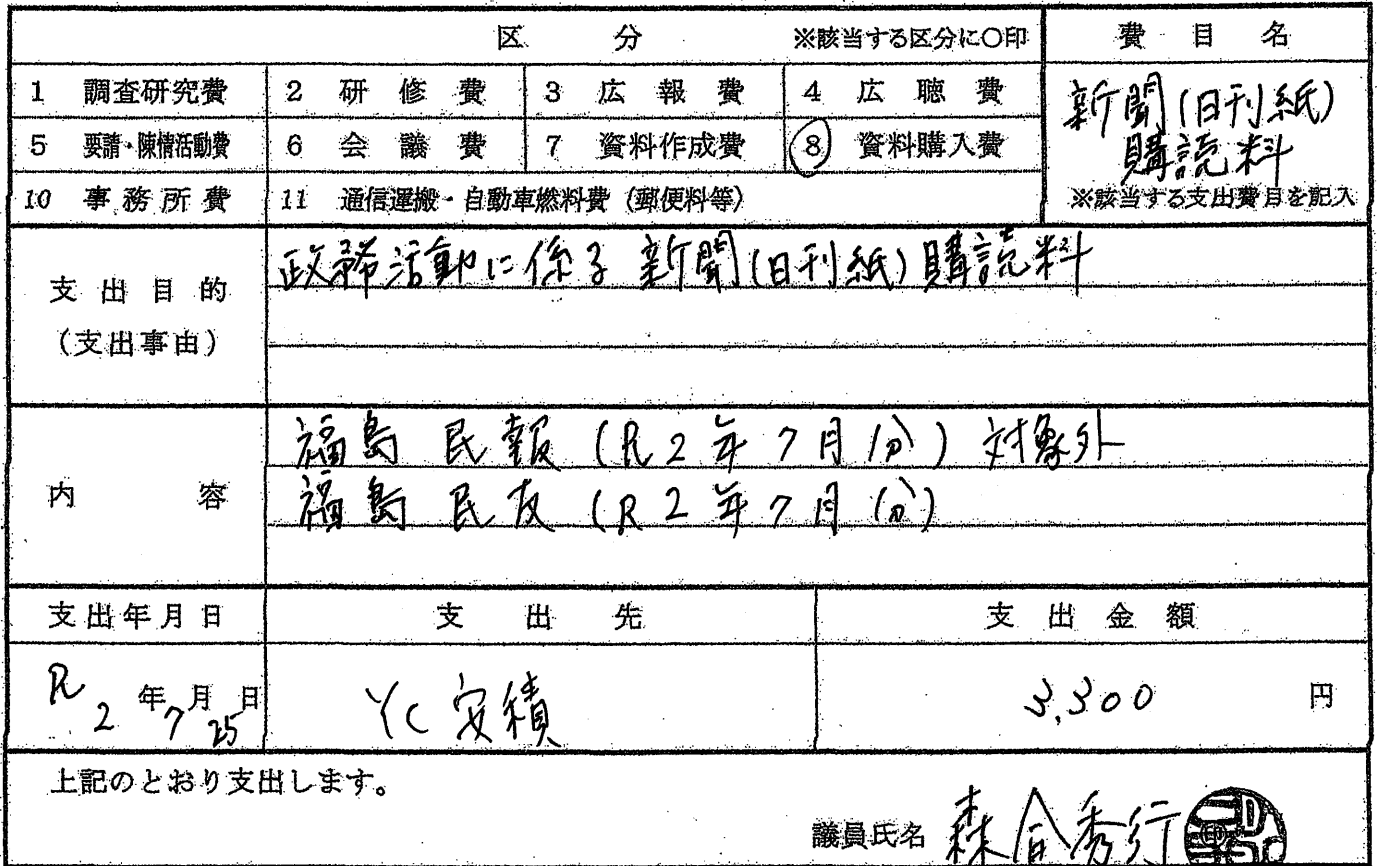 区 分 ※該当する区分に○印 費 目 名
1 調査研究費 2 研 修 費 3 広 報 費 4 広 聴 費
5 要請・陳情活動費 6 会 議 費 7 資料作成費 8 資料購入費
10 事 務 所 費 11 通信運搬・自動車燃料費(郵便料等)
新聞(日刊紙)
購読料
※該当する支出費目を記入
支 出 目 的
(支出事由)
政務活動に係る新聞(日刊紙)購読料
内 容
福島民報(R2年7月分)対象外
福島民友(R2年7月分)
支出年月日 支 出 先 支 出 金 額
R2年7月25日 YC安積 3,300 円
上記のとおり支出します。
議員氏名 森合秀行